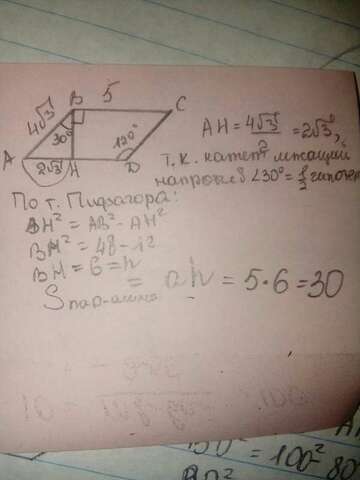 B 5 C
4√3 30° 120°
A 2√3 H D
AH = 4√3/2 = 2√3,
т.к. катет лежащий
напротив ∠30° = 1/2 гипотен
По т. Пифагора:
BH² = AB² - AH²
BH² = 48 - 12
BH = 6 = h
S пар-амма = ah = 5·6 = 30
= 100² - 80